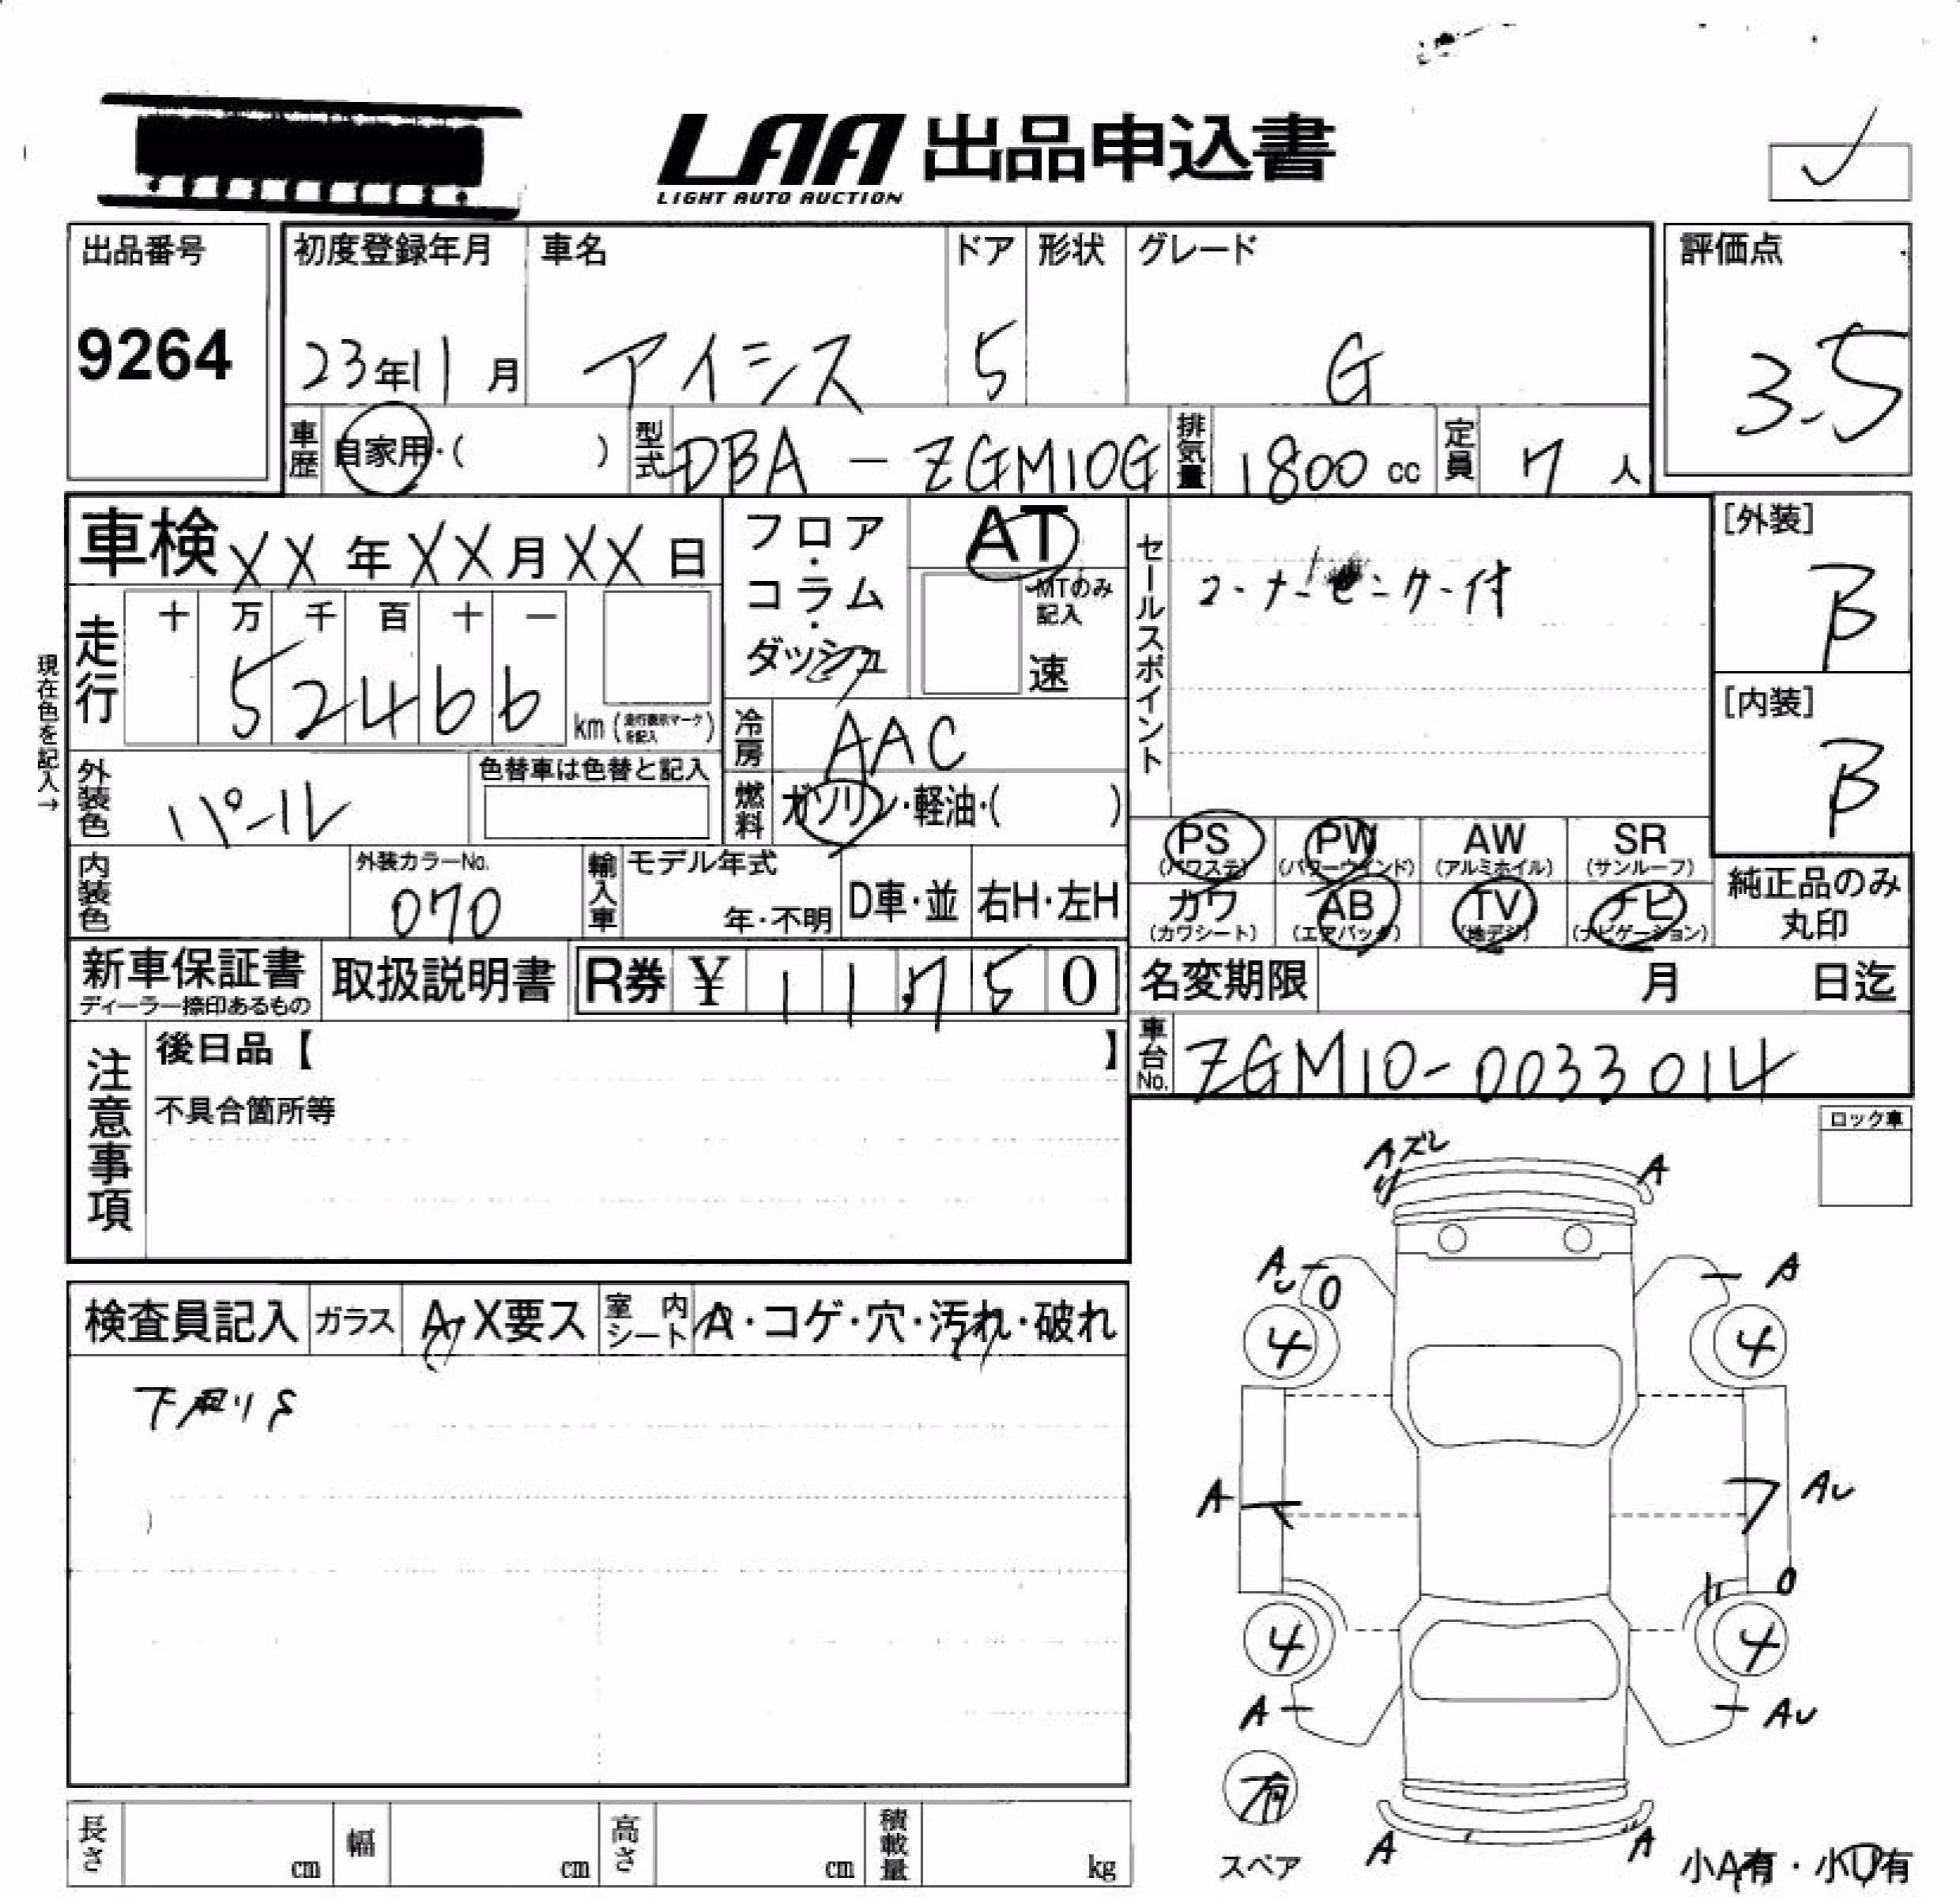 LAA 出品申込書
LIGHT AUTO AUCTION
出品番号
9264
初度登録年月
23年11月
車名
アイシス
ドア
5
形状
グレード
G
評価点
3.5
車歴
自家用・( )
型式
DBA-ZGM10G
排気量
1800 cc
定員
7 人
車検 XX年XX月XX日
フロア・コラム・ダッシュ
AT
MTのみ記入
速
セールスポイント
コーナーセンサー付
[外装]
B
[内装]
B
現在色を記入→
走行
十 万 千 百 十 一
52466
km (走行表示マークを記入)
冷房
AAC
外装色
パール
色替車は色替と記入
燃料
ガソリン・軽油・( )
PS (パワステ)
PW (パワーウィンド)
AW (アルミホイル)
SR (サンルーフ)
カワ (カワシート)
AB (エアバック)
TV (地デジ)
ナビ (ナビゲーション)
純正品のみ丸印
内装色
外装カラーNo.
070
輸入車
モデル年式
年・不明
D車・並
右H・左H
新車保証書
ディーラー捺印あるもの
取扱説明書
R券 ¥ 11,750
名変期限 月 日迄
車台No.
ZGM10-0033014
注意事項
後日品【 】
不具合箇所等
ロック車
検査員記入
ガラス
A, X要ス
室内シート
A・コゲ・穴・汚れ・破れ
下廻りS
Aズレ
A
A
A
4
4
A
AU
4
4
A
AU
有
スペア
A
A
小A有・小U有
長さ cm
幅 cm
高さ cm
積載量 kg